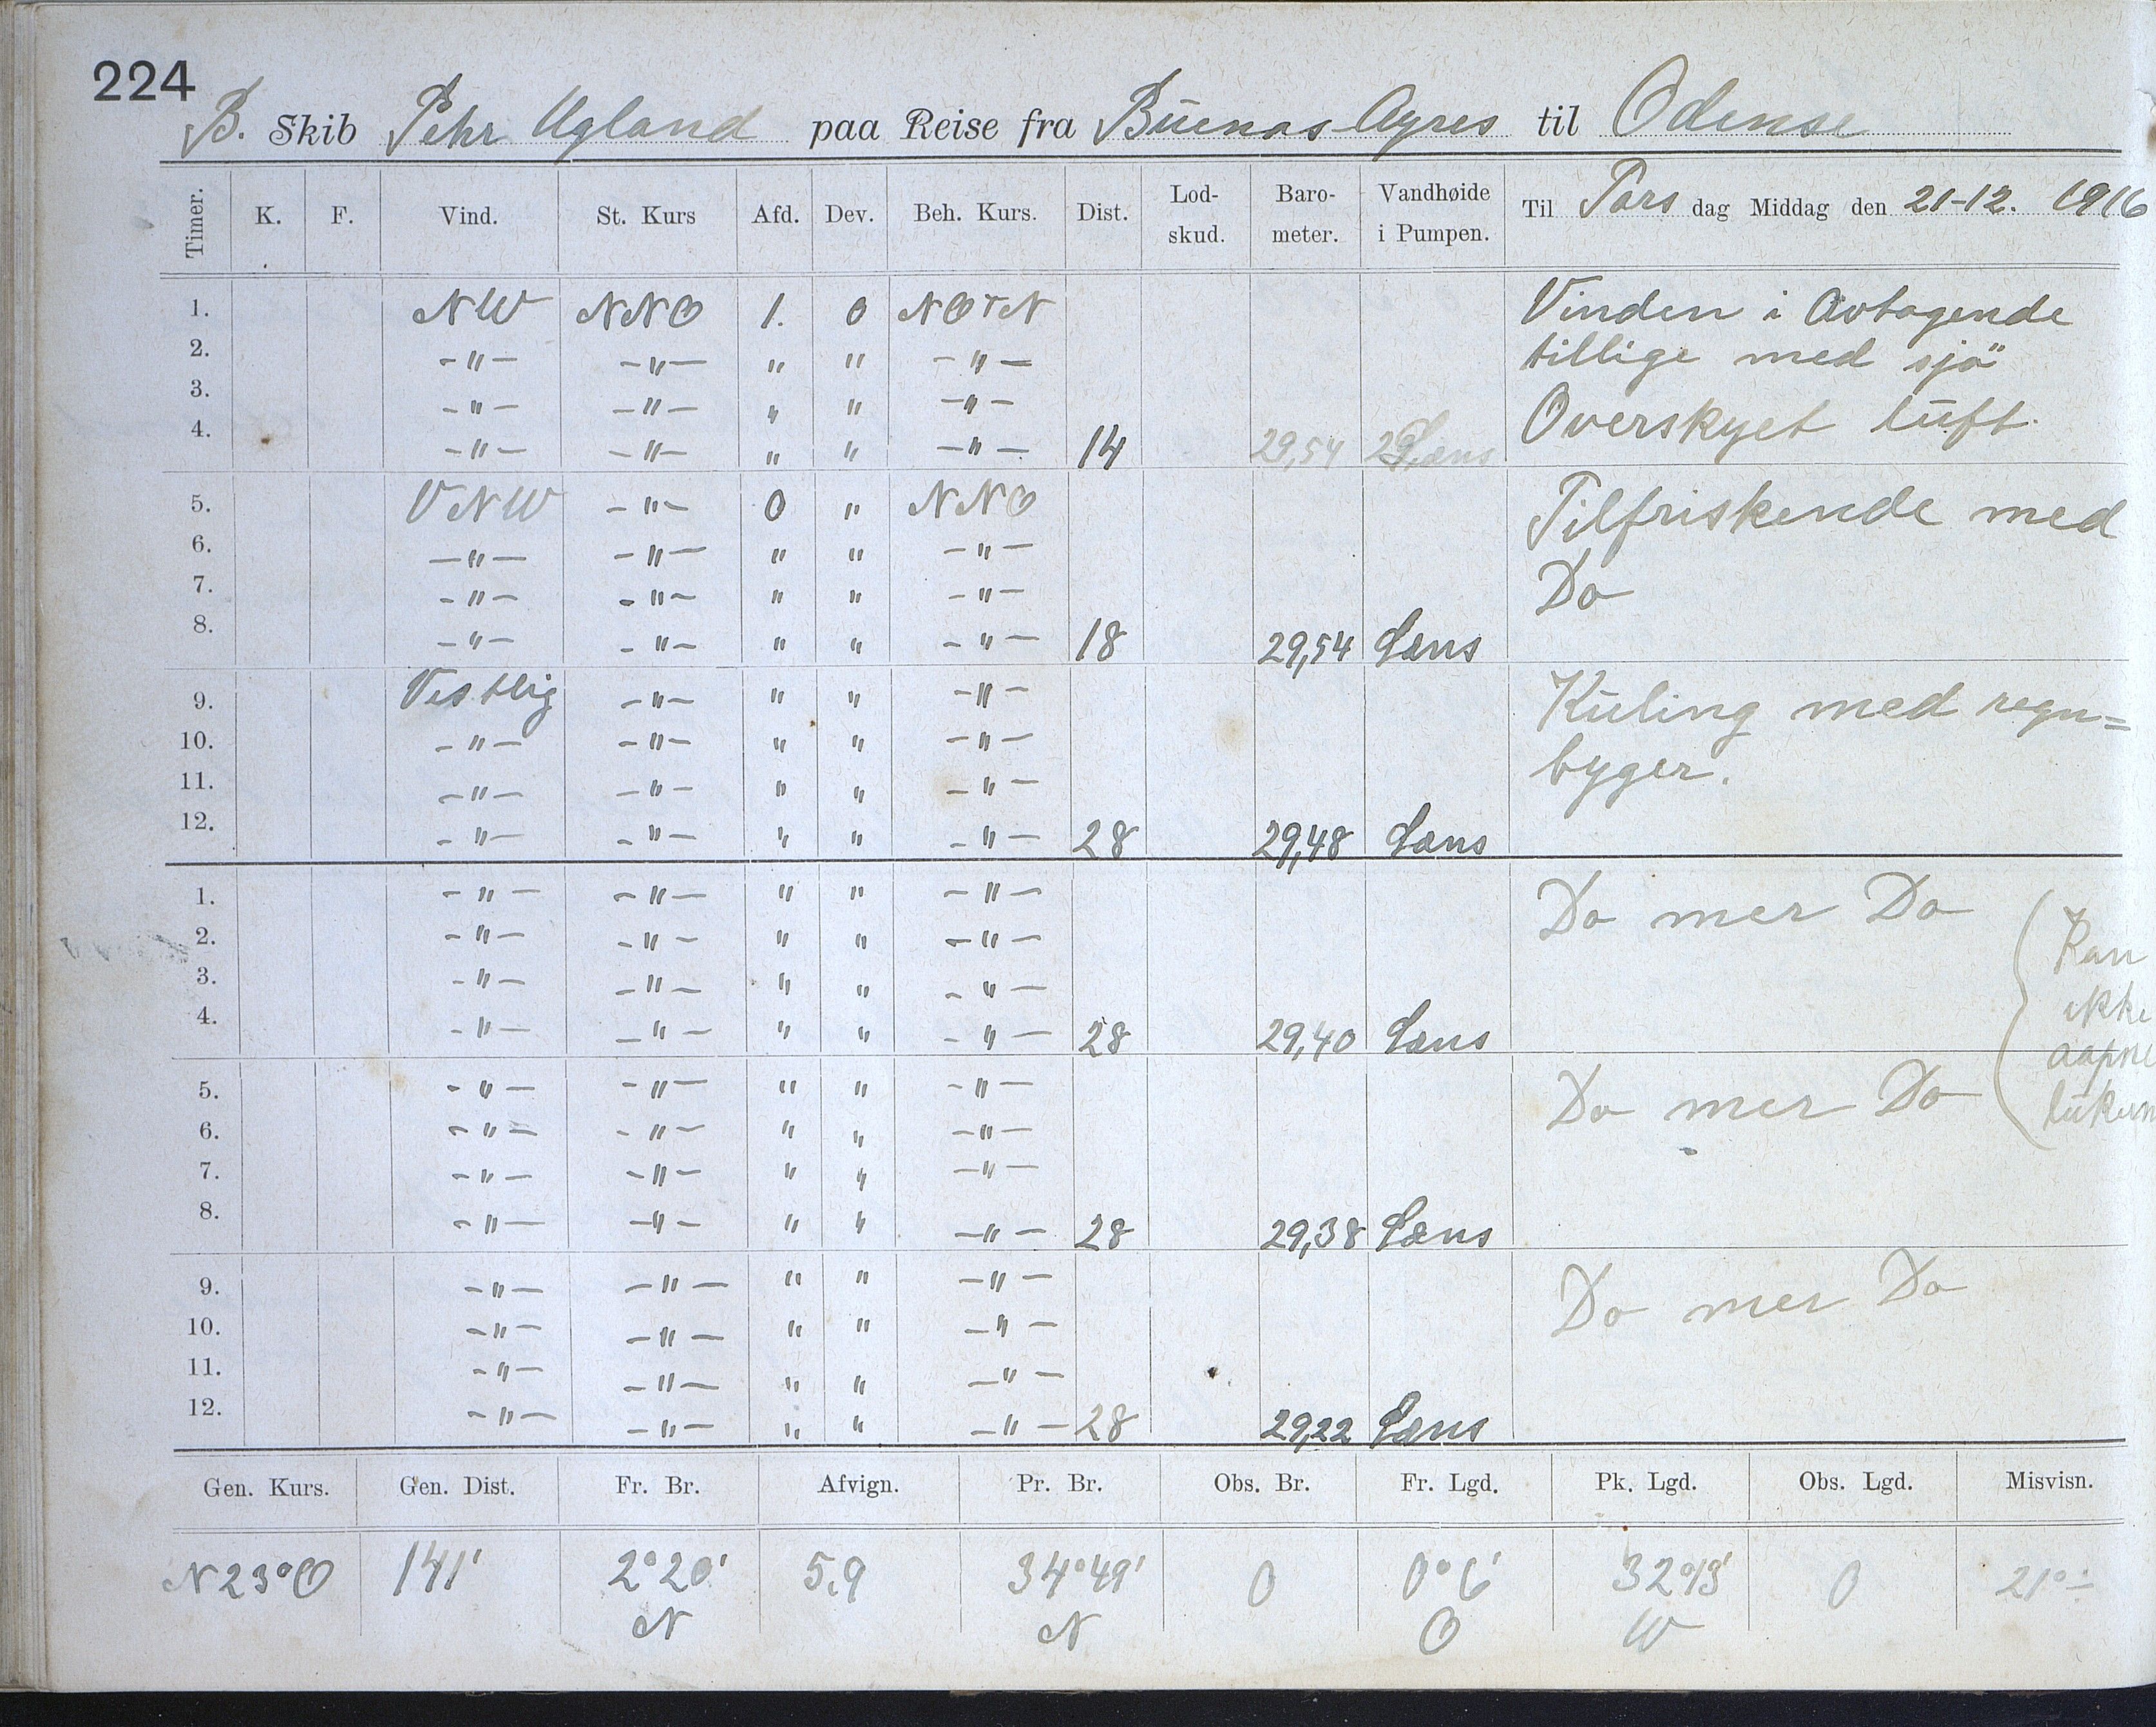 224
B. Skib Pehr Ugland paa Reise fra Buenos-Ayres til Odense
Timer. K. F. Vind. St. Kurs Afd. Dev. Beh. Kurs. Dist. Lod-skud. Baro-meter. Vandhøide i Pumpen. Til Tors dag Middag den 21-12. 1916
1. NW NNO 1. 0 NOTN Vinden i Avtagende
2. -"- -"- " " -"- tillige med sjö
3. -"- -"- " " -"-
4. -"- -"- " " -"- 14 29,54 Læns Overskyet luft.
5. VNW -"- 0 " NNO Tilfriskende med
6. -"- -"- " " -"-
7. -"- -"- " " -"- Do
8. -"- -"- " " -"- 18 29,54 Læns
9. Vestlig -"- " " -"- Kuling med regn=
10. -"- -"- " " -"- byger.
11. -"- -"- " " -"-
12. -"- -"- " " -"- 28 29,48 Læns
1. -"- -"- " " -"- Do mer Do
2. -"- -"- " " -"- Kan
3. -"- -"- " " -"- ikke
4. -"- -"- " " -"- 28 29,40 Læns aapne
5. -"- -"- " " -"- Do mer Do
6. -"- -"- " " -"-
7. -"- -"- " " -"-
8. -"- -"- " " -"- 28 29,38 Læns
9. -"- -"- " " -"- Do mer Do
10. -"- -"- " " -"-
11. -"- -"- " " -"-
12. -"- -"- " " -"- 28 29,22 Læns
Gen. Kurs. Gen. Dist. Fr. Br. Afvign. Pr. Br. Obs. Br. Fr. Lgd. Pk. Lgd. Obs. Lgd. Misvisn.
N23°O 141' 2°20' 5,9 34°49' 0 0°6' 32°13' 0 21°
N N O W